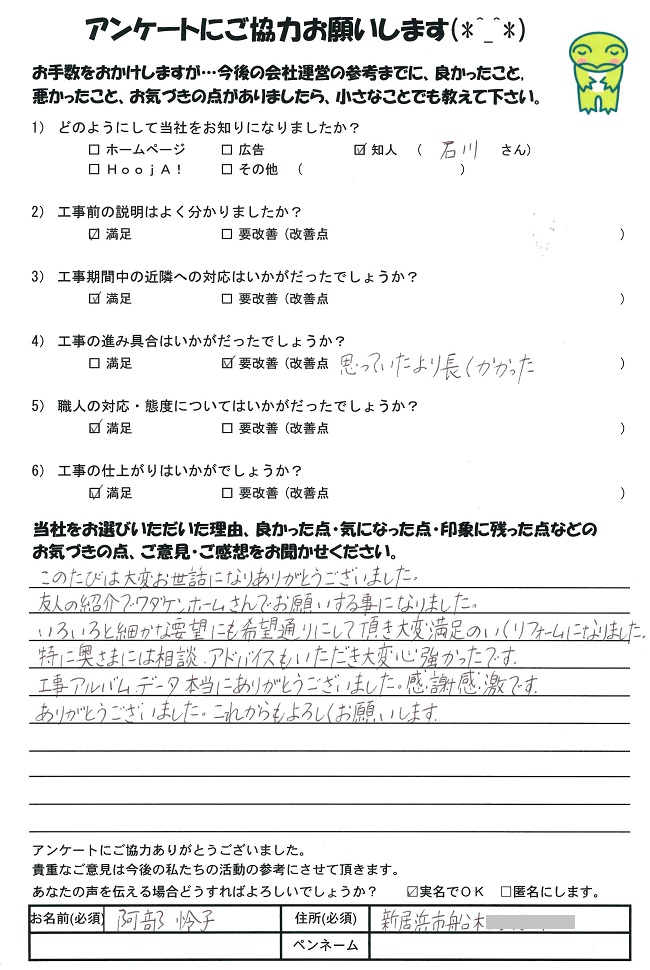 アンケートにご協力お願いします(*^_^*)
お手数をおかけしますが…今後の会社運営の参考までに、良かったこと、
悪かったこと、お気づきの点がありましたら、小さなことでも教えて下さい。
1) どのようにして当社をお知りになりましたか？
□ ホームページ □ 広告 ☑ 知人 ( 石川 さん)
□ ＨｏｏｊＡ！ □ その他 ( )
2) 工事前の説明はよく分かりましたか？
☑ 満足 □ 要改善 (改善点 )
3) 工事期間中の近隣への対応はいかがだったでしょうか？
☑ 満足 □ 要改善 (改善点 )
4) 工事の進み具合はいかがだったでしょうか？
□ 満足 ☑ 要改善 (改善点 思っていたより長くかかった )
5) 職人の対応・態度についてはいかがだったでしょうか？
☑ 満足 □ 要改善 (改善点 )
6) 工事の仕上がりはいかがでしょうか？
☑ 満足 □ 要改善 (改善点 )
当社をお選びいただいた理由、良かった点・気になった点・印象に残った点などの
お気づきの点、ご意見・ご感想をお聞かせください。
このたびは大変お世話になりありがとうございました。
友人の紹介でワダケンホームさんでお願いする事になりました。
いろいろと細かな要望にも希望通りにして頂き大変満足のいくリフォームになりました。
特に奥さまには相談、アドバイスもいただき大変心強かったです。
工事アルバム、データ本当にありがとうございました。感謝感激です。
ありがとうございました。これからもよろしくお願いします。
アンケートにご協力ありがとうございました。
貴重なご意見は今後の私たちの活動の参考にさせて頂きます。
あなたの声を伝える場合どうすればよろしいでしょうか？ ☑実名でＯＫ □匿名にします。
お名前(必須) 阿部 怜子 住所(必須) 新居浜市船木
ペンネーム